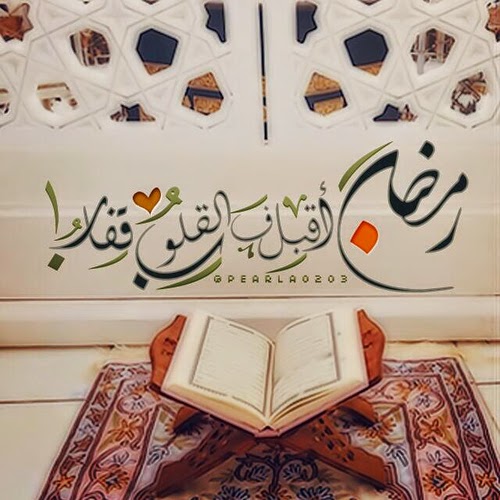 رمضان أقبل ف القلوب قفار !
@PEARLA0203